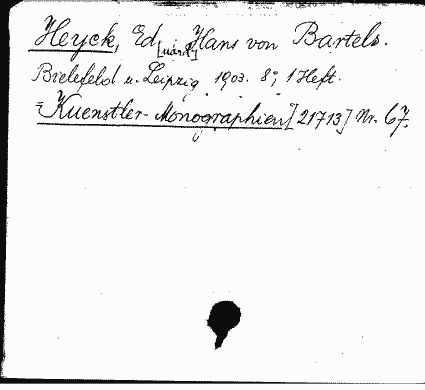 Heyck, Ed[uard] Hans von Bartels.
Bielefeld u. Leipzig 1903. 8°, 1 Heft.
= Kuenstler-Monographien [21713] Nr. 67.